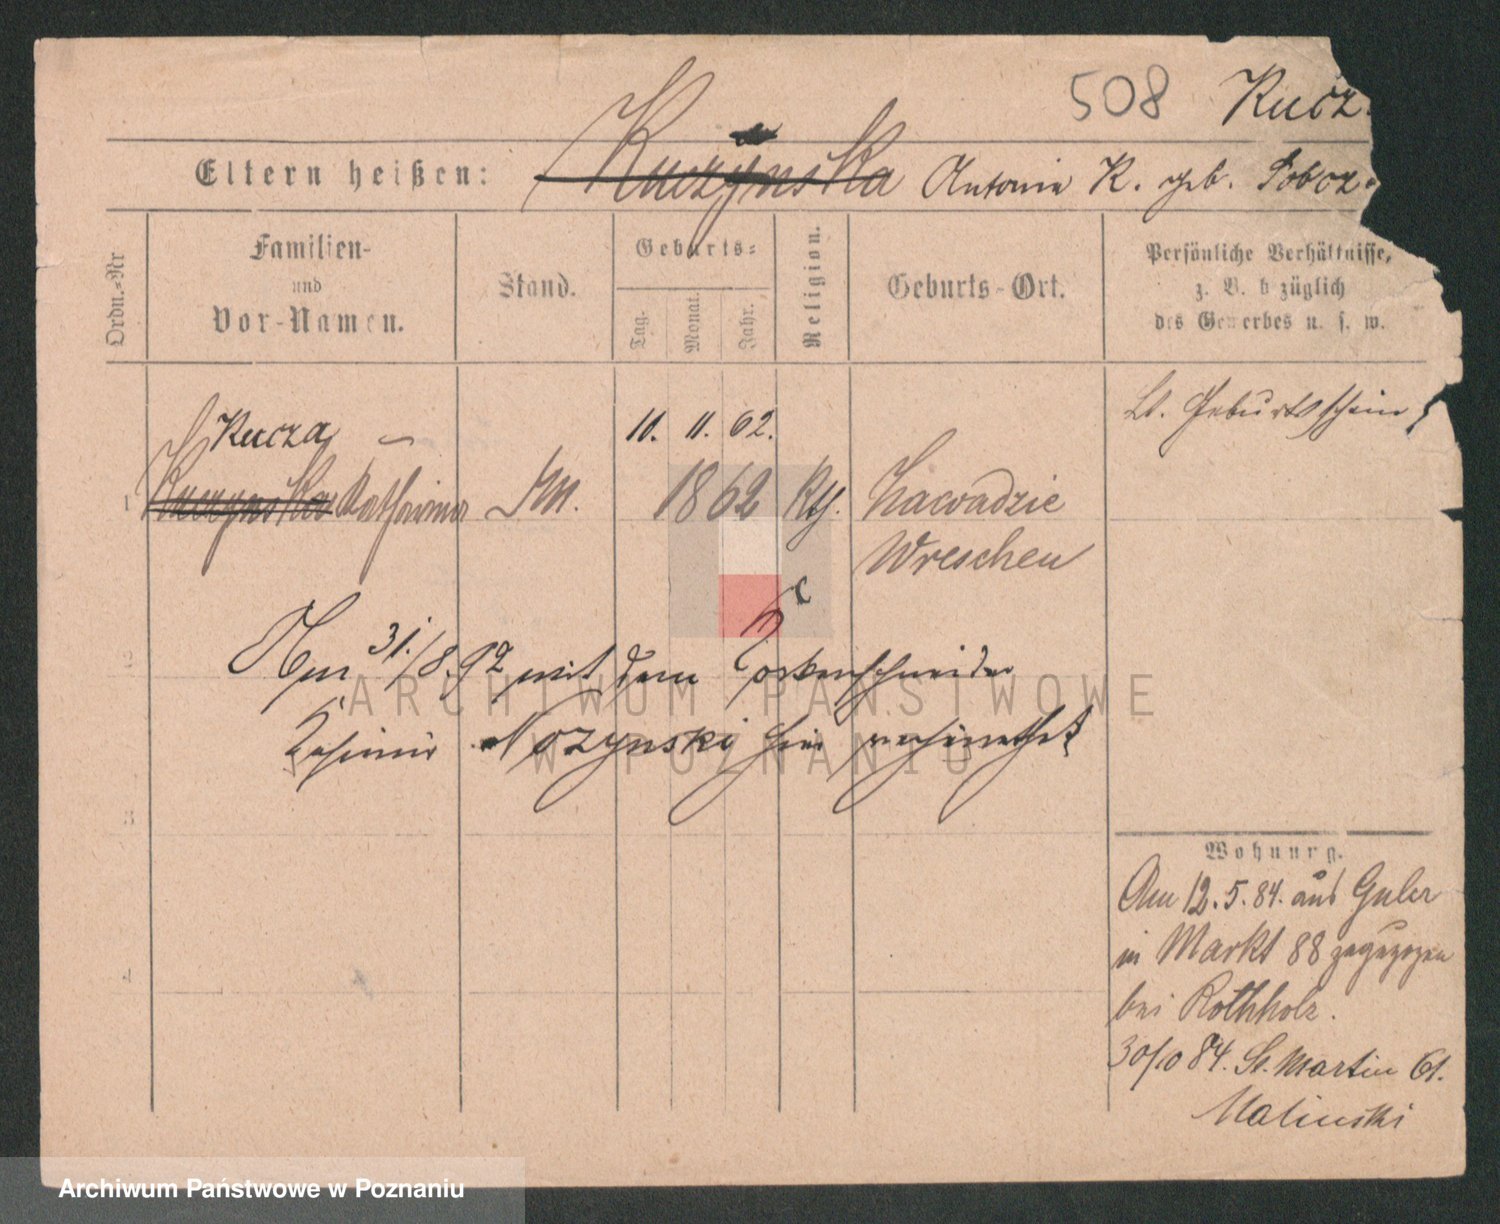 508 Kucz
Eltern heißen: Kuczynska Antonia K. geb. Soboz
Ordn.-Nr
Familien- und Vor-Namen.
Stand.
Geburts-
Tag. Monat. Jahr.
Religion.
Geburts-Ort.
Persönliche Verhältnisse,
z. B. b züglich
des Gewerbes u. s. w.
Kucza 11. 62. Lt. Geburtsschein
1 Kuczynska Katharina 1862 Kth. Zawadzie
Wreschen
Am 31./8. 92 mit dem
Kasimir Nozynski hier verheirathet
3
4
Wohnung.
Am 12.5.84. aus
in Markt 88 zugezogen
bei Rothholz.
30/10 84. St. Martin 61.
Malinski
ARCHIWUM PAŃSTWOWE
W POZNANIU
Archiwum Państwowe w Poznaniu